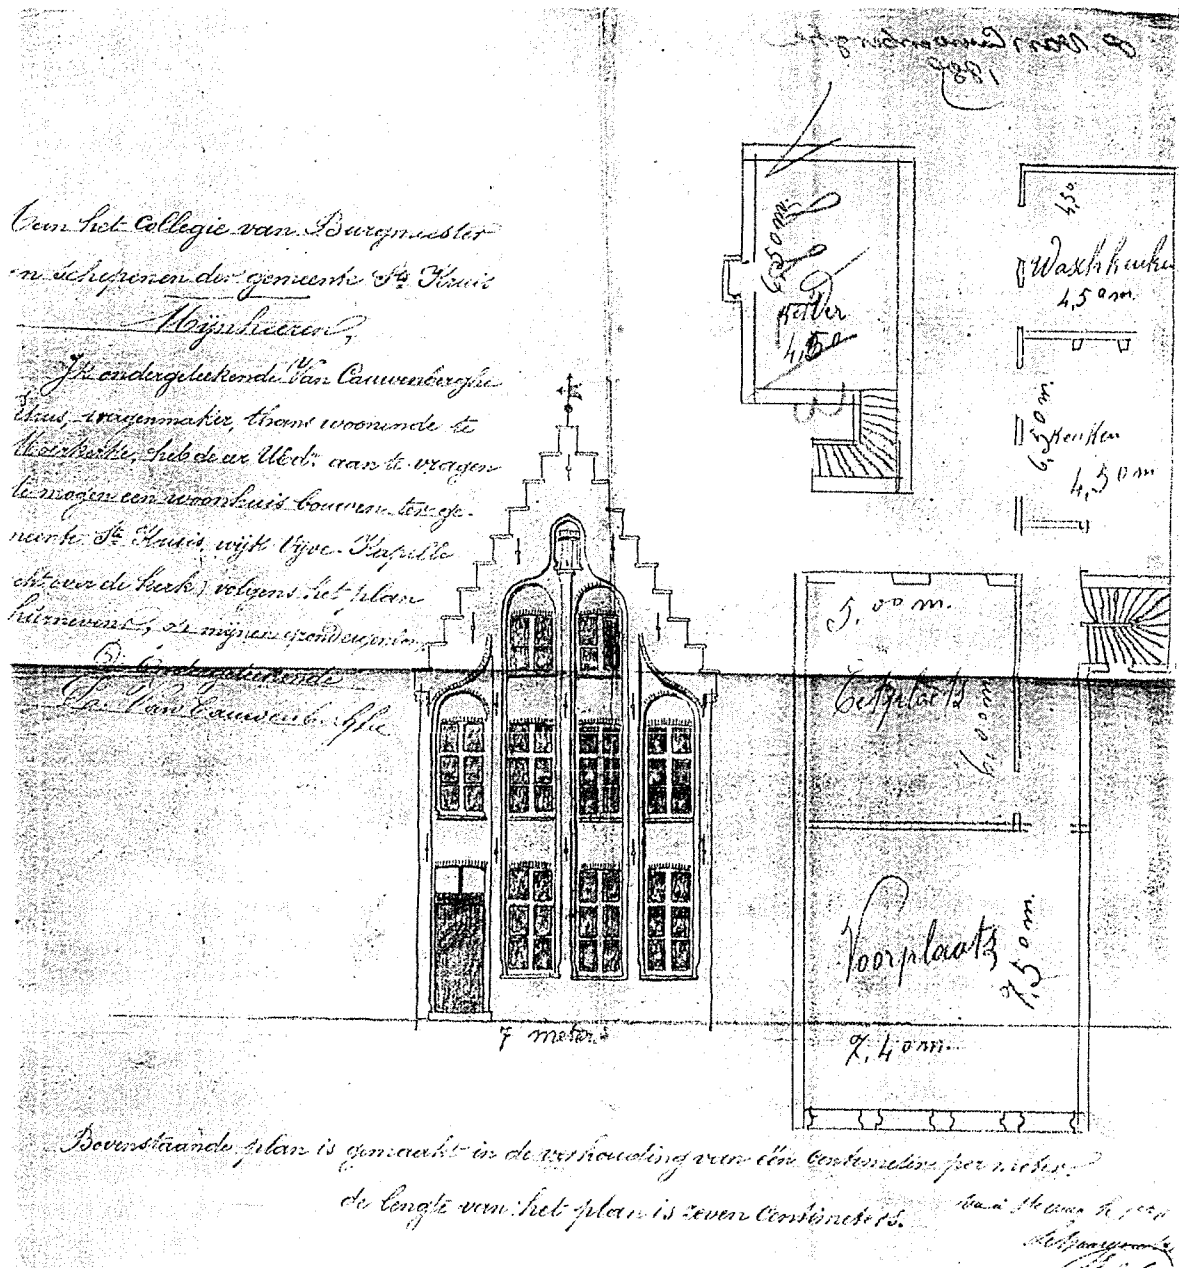 Aan het Collegie van Burgmeester
en Schepenen der gemeente Ste Kruis
Mijnheeren,
Ik ondergeteekende Van Cauwenberghe
wagenmaker, thans woonende te
Moerkerke, heb de eer UEd. aan te vragen
te mogen een woonhuis bouwen ter ge-
meente Ste Kruis, wijk Vijve-Kapelle
over de kerk) volgens het plan
hiernevens, op mijnen grondeigendom
De Ondergeteekende
Van Cauwenberghe
Van Cauwenberghe
6,50 m
Kelder
4,50
4,50
Waschkeuken
4,50 m.
Keuken
4,50 m
5.00 m.
Eetplaats
6,00 m
Voorplaats
7,50 m
7,40 m.
7 meters
Bovenstaande plan is gemaakt in de verhouding van één Centimeter per meter.
de lengte van het plan is zeven Centimeters.